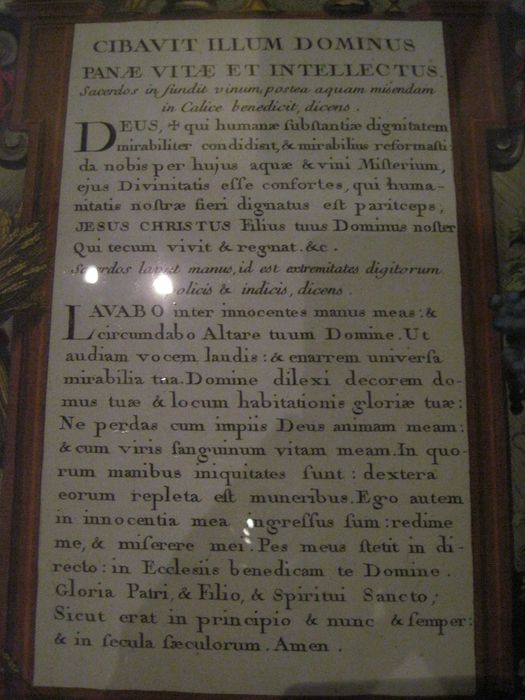 CIBAVIT ILLUM DOMINUS
PANÆ VITÆ ET INTELLECTUS.
Sacerdos in fundit vinum, postea aquam misendam
in Calice benedicit, dicens.
DEUS, ✠ qui humanæ ſubſtantiæ dignitatem
mirabiliter condidiſti, & mirabilius reformaſti:
da nobis per hujus aquæ & vini Miſterium,
ejus Divinitatis eſſe confortes, qui huma-
nitatis noſtræ fieri dignatus eſt paritceps,
JESUS CHRISTUS Filius tuus Dominus noſter
Qui tecum vivit & regnat. &c.
Sacerdos lavet manus, id est extremitates digitorum
policis & indicis, dicens.
LAVABO inter innocentes manus meas: &
circumdabo Altare tuum Domine. Ut
audiam vocem laudis: & enarrem univerſa
mirabilia tua. Domine dilexi decorem do-
mus tuæ & locum habitationis gloriæ tuæ:
Ne perdas cum impiis Deus animam meam:
& cum viris ſanguinum vitam meam. In quo-
rum manibus iniquitates ſunt: dextera
eorum repleta eſt muneribus. Ego autem
in innocentia mea ingreſſus ſum: redime
me, & miſerere mei. Pes meus ſtetit in di-
recto: in Eccleſiis benedicam te Domine.
Gloria Patri, & Filio, & Spiritui Sancto;
Sicut erat in principio & nunc & ſemper:
& in ſecula ſæculorum. Amen.